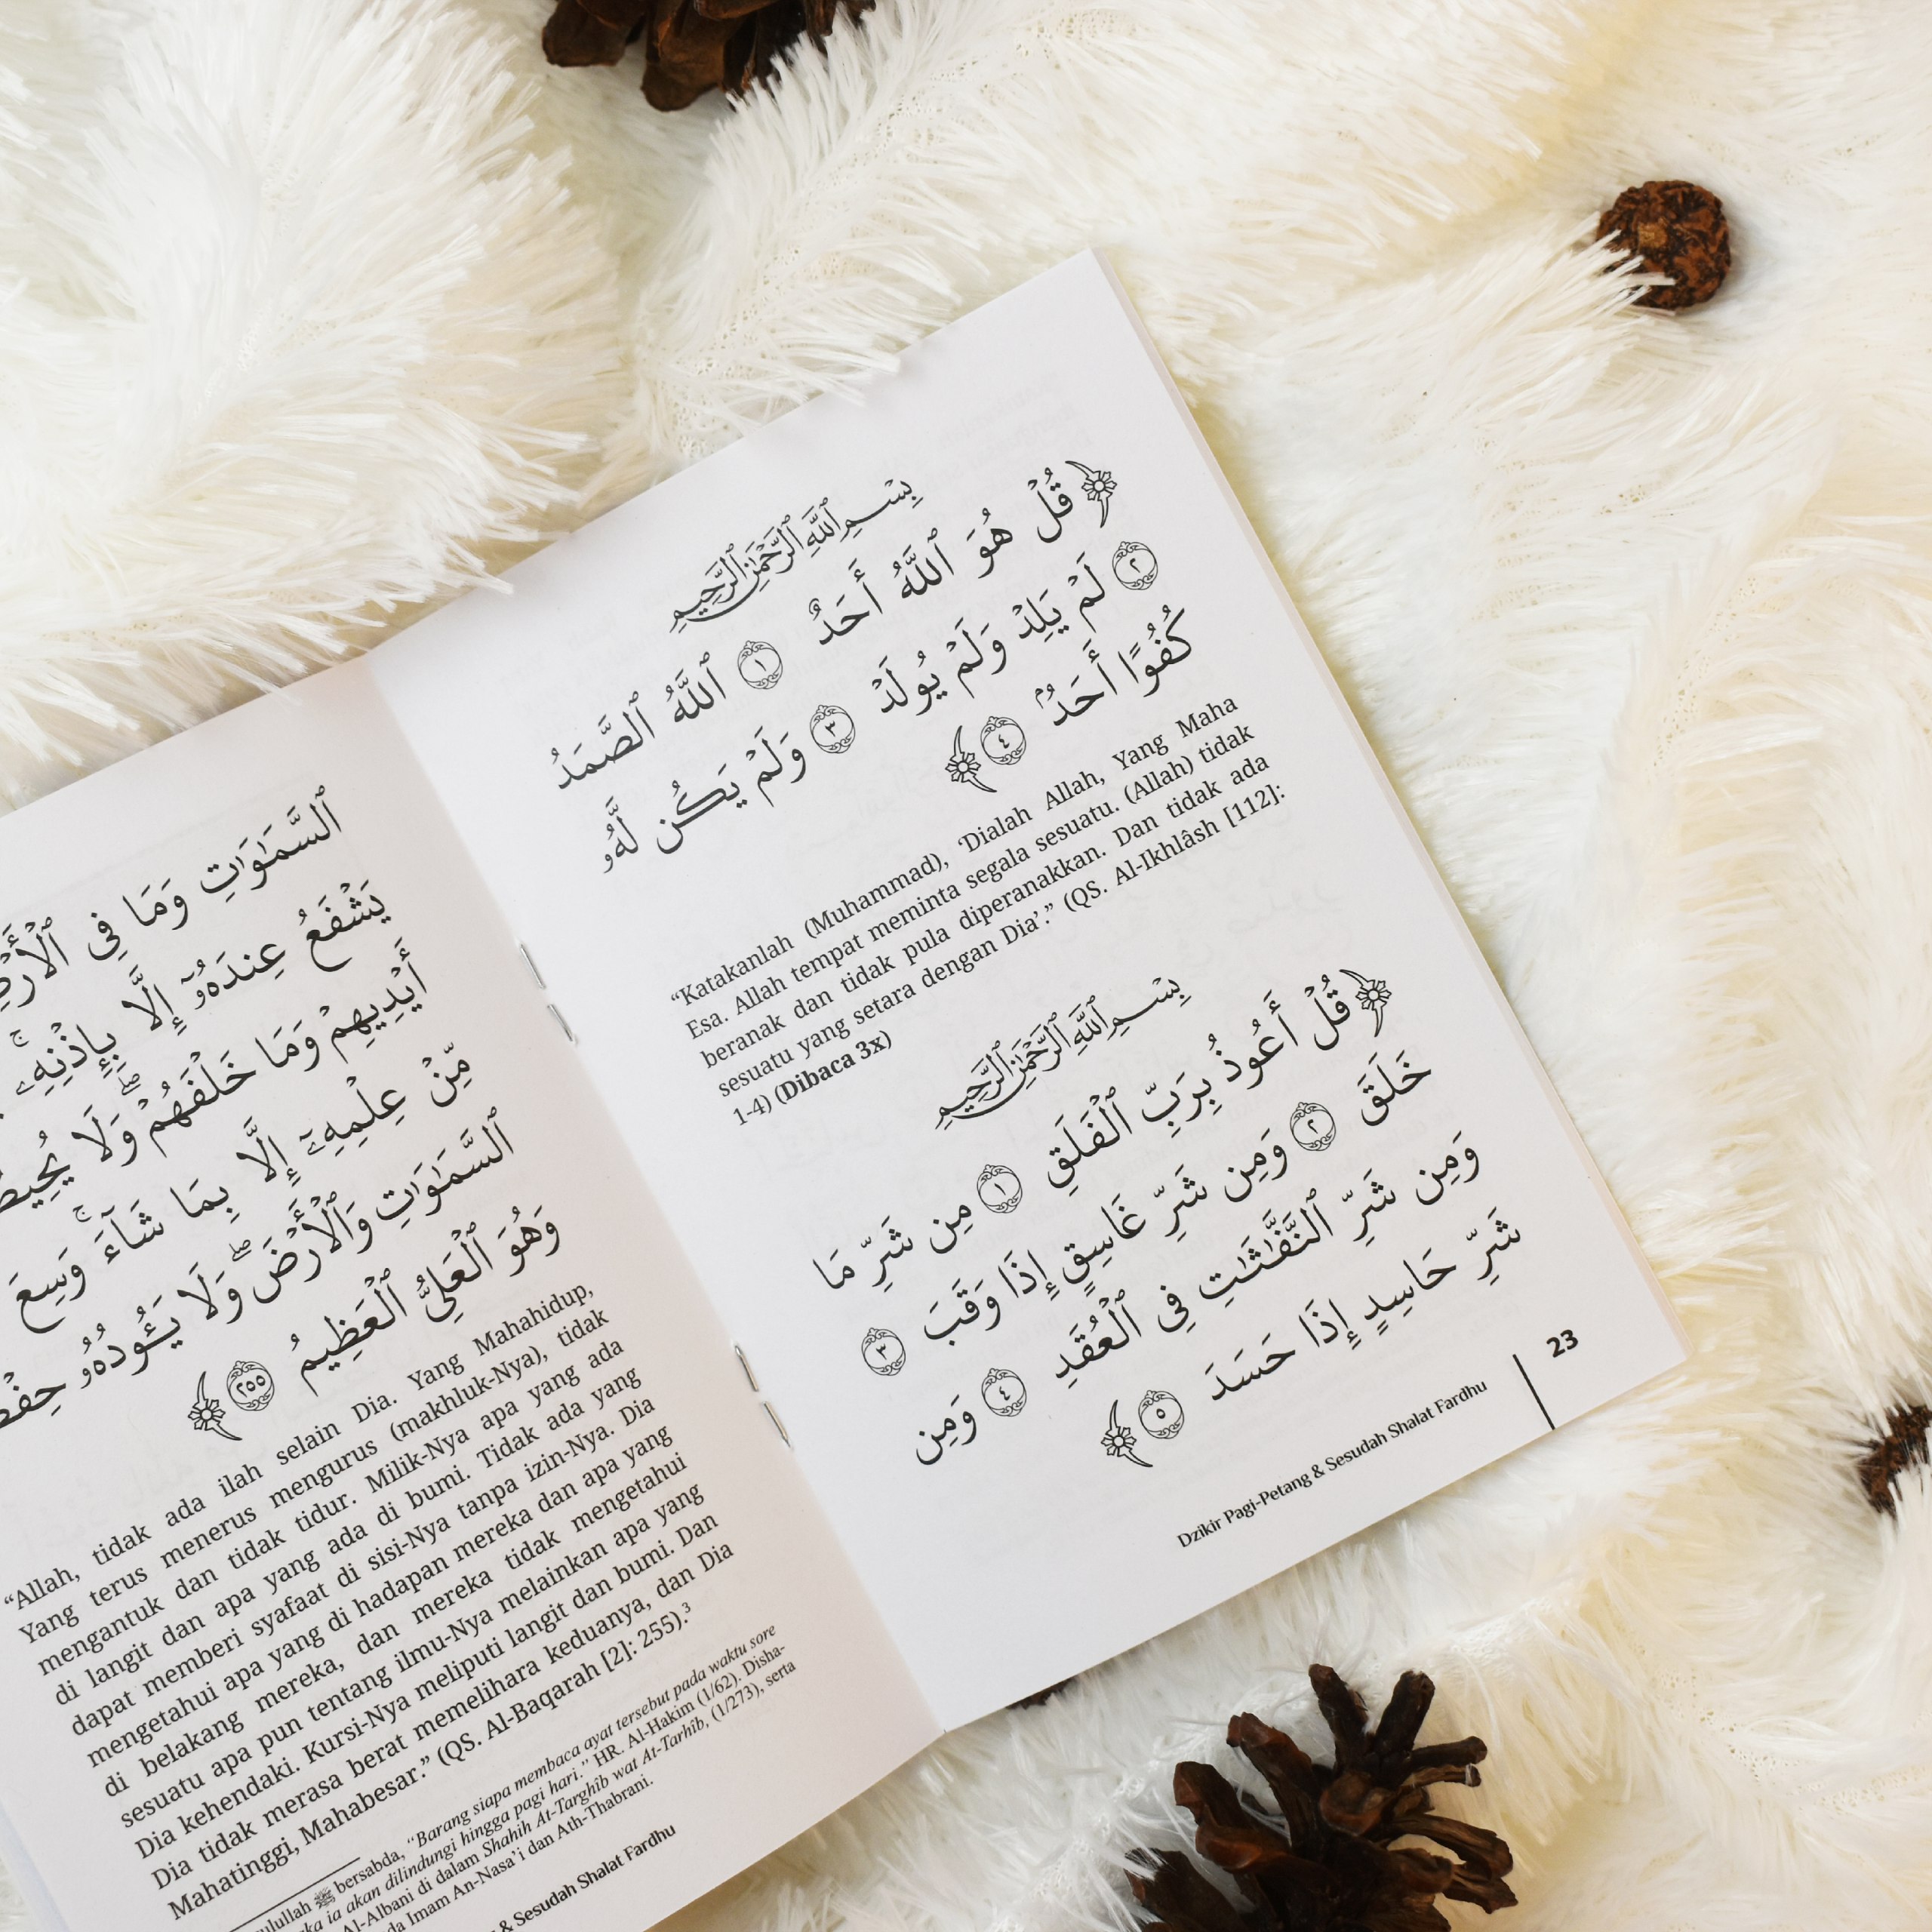 ٱلسَّمَٰوَٰتِ وَمَا فِي ٱلْأَرْضِ
يَشْفَعُ عِندَهُۥٓ إِلَّا بِإِذْنِهِۦۚ
أَيْدِيهِمْ وَمَا خَلْفَهُمْۖ وَلَا
مِّنْ عِلْمِهِۦٓ إِلَّا بِمَا شَآءَۚ وَسِعَ
ٱلسَّمَٰوَٰتِ وَٱلْأَرْضَۖ وَلَا يَـُٔودُهُۥ
وَهُوَ ٱلْعَلِيُّ ٱلْعَظِيمُ ٢٥٥
“Allah, tidak ada ilah selain Dia. Yang Mahahidup,
Yang terus menerus mengurus (makhluk-Nya), tidak
mengantuk dan tidak tidur. Milik-Nya apa yang ada
di langit dan apa yang ada di bumi. Tidak ada yang
dapat memberi syafaat di sisi-Nya tanpa izin-Nya. Dia
mengetahui apa yang di hadapan mereka dan apa yang
di belakang mereka, dan mereka tidak mengetahui
sesuatu apa pun tentang ilmu-Nya melainkan apa yang
Dia kehendaki. Kursi-Nya meliputi langit dan bumi. Dan
Dia tidak merasa berat memelihara keduanya, dan Dia
Mahatinggi, Mahabesar.” (QS. Al-Baqarah [2]: 255).³
ﷺ bersabda, “Barang siapa membaca ayat tersebut pada waktu sore
ia akan dilindungi hingga pagi hari.” HR. Al-Hakim (1/62). Disha-
Al-Albani di dalam Shahih At-Targhîb wat At-Tarhîb, (1/273), serta
Imam An-Nasa’i dan Ath-Thabrani.
& Sesudah Shalat Fardhu
بِسْمِ ٱللَّهِ ٱلرَّحْمَٰنِ ٱلرَّحِيمِ
قُلْ هُوَ ٱللَّهُ أَحَدٌ ١ ٱللَّهُ ٱلصَّمَدُ
٢ لَمْ يَلِدْ وَلَمْ يُولَدْ ٣ وَلَمْ يَكُن لَّهُۥ
كُفُوًا أَحَدٌۢ ٤
“Katakanlah (Muhammad), ‘Dialah Allah, Yang Maha
Esa. Allah tempat meminta segala sesuatu. (Allah) tidak
beranak dan tidak pula diperanakkan. Dan tidak ada
sesuatu yang setara dengan Dia’.” (QS. Al-Ikhlâsh [112]:
1-4) (Dibaca 3x)
بِسْمِ ٱللَّهِ ٱلرَّحْمَٰنِ ٱلرَّحِيمِ
قُلْ أَعُوذُ بِرَبِّ ٱلْفَلَقِ ١ مِن شَرِّ مَا
خَلَقَ ٢ وَمِن شَرِّ غَاسِقٍ إِذَا وَقَبَ ٣
وَمِن شَرِّ ٱلنَّفَّٰثَٰتِ فِي ٱلْعُقَدِ ٤ وَمِن
شَرِّ حَاسِدٍ إِذَا حَسَدَ ٥
Dzikir Pagi-Petang & Sesudah Shalat Fardhu
23